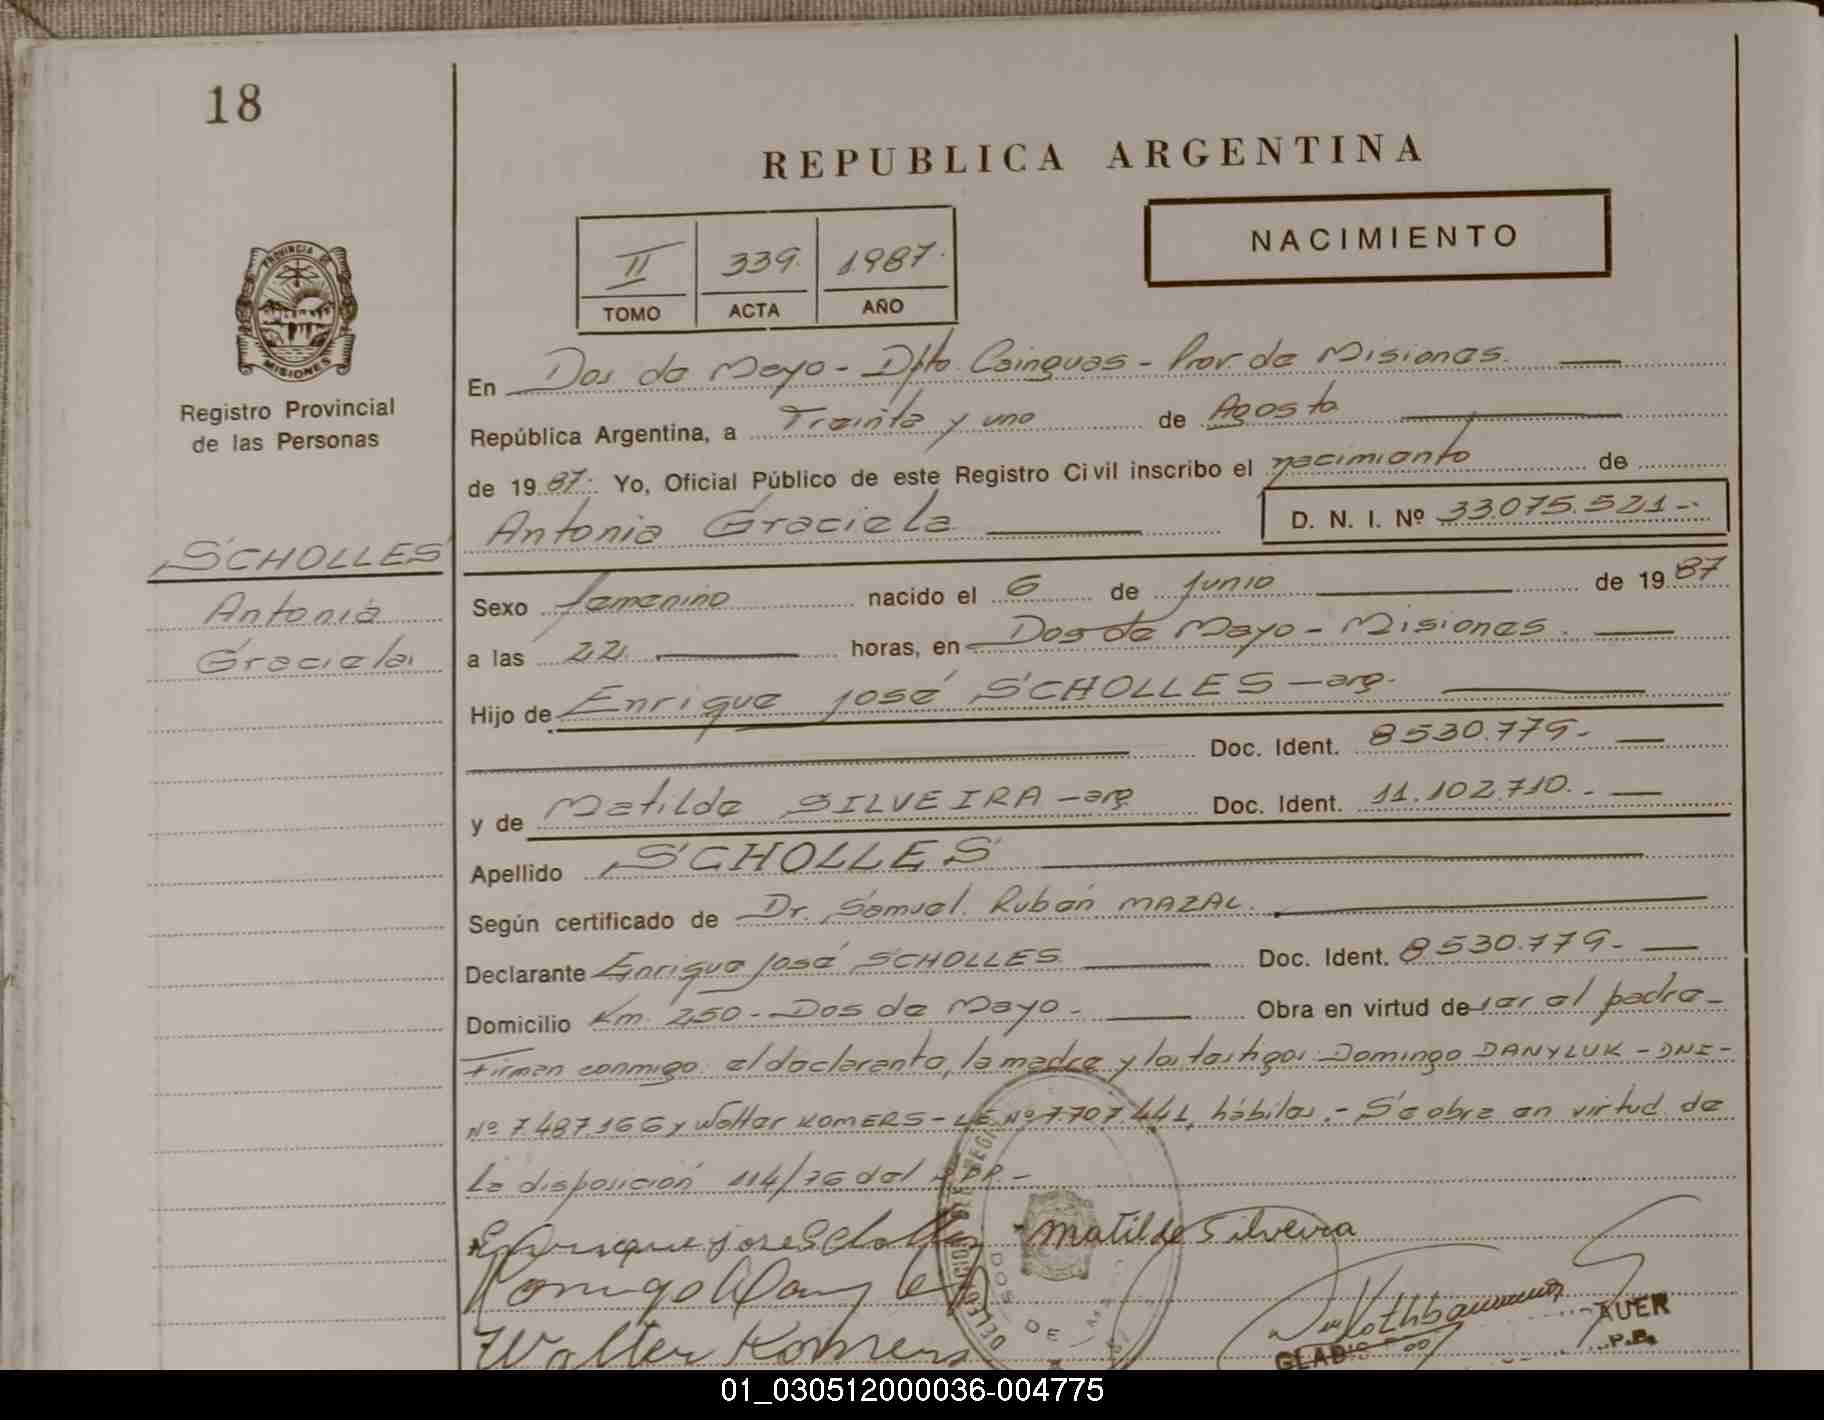 18
REPUBLICA ARGENTINA
NACIMIENTO
II 339. 1987.
TOMO ACTA AÑO
PROVINCIA DE
MISIONES
Registro Provincial
de las Personas
En Dos de Mayo - Dpto. Cainguas - Prov. de Misiones.
República Argentina, a Treinta y uno de Agosto
de 1987. Yo, Oficial Público de este Registro Civil inscribo el nacimiento de
Antonia Graciela D. N. I. Nº 33.075.521-
SCHOLLES
Antonia
Graciela
Sexo femenino nacido el 6 de Junio de 1987
a las 22 horas, en Dos de Mayo - Misiones.
Hijo de Enrique José SCHOLLES - arg.
Doc. Ident. 8530.779-
y de Matilde SILVEIRA - arg Doc. Ident. 11.102.710.-
Apellido SCHOLLES
Según certificado de Dr. Samuel Rubén MAZAL.
Declarante Enrique José SCHOLLES Doc. Ident. 8530.779-
Domicilio Km. 250 - Dos de Mayo - Obra en virtud de ser el padre-
Firman conmigo: el declarante, la madre y los testigos: Domingo DANYLUK - DNI-
Nº 7.487.166 y Walter KOMERS - LE Nº 7.707.441, hábiles.- Se obra en virtud de
la disposición 114/76 del
Enrique jose Scholles Matilde Silveira
Walter Komers
DOS DE
AUER
P.B.
01_030512000036-004775